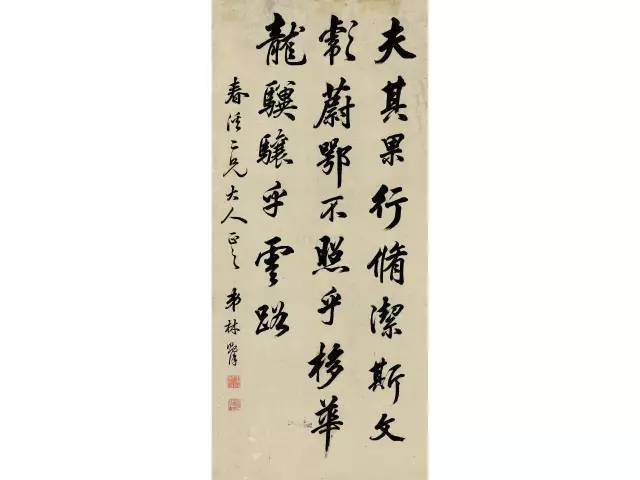 夫其果行脩潔斯文
彪蔚鄂不照乎移華
龍驥驤乎雲路
春溪二兄大人正之 弟林則徐